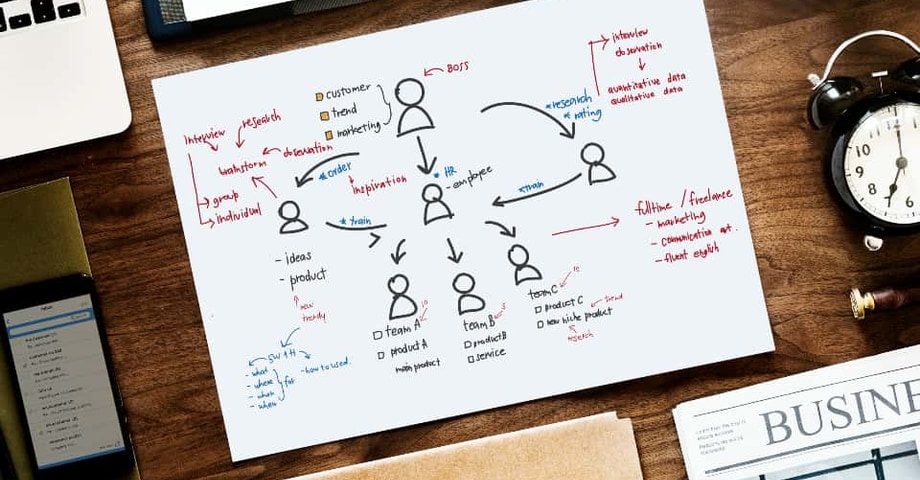 BOSS
customer
trend
marketing
interview
observation
quantitative data
qualitative data
*research
* rating
Interview
research
brainstorm
observation
group
individual
*order
inspiration
* HR
- employee
*train
* train
fulltime / freelance
- marketing
- fluent english
- ideas
- product
new
trendy
5W1H
- what
- where
- when
for
- how to used
team A
10
product A
main product
team B
5
product B
service
team C
10
product C
trend
new niche product
research
BUSINE